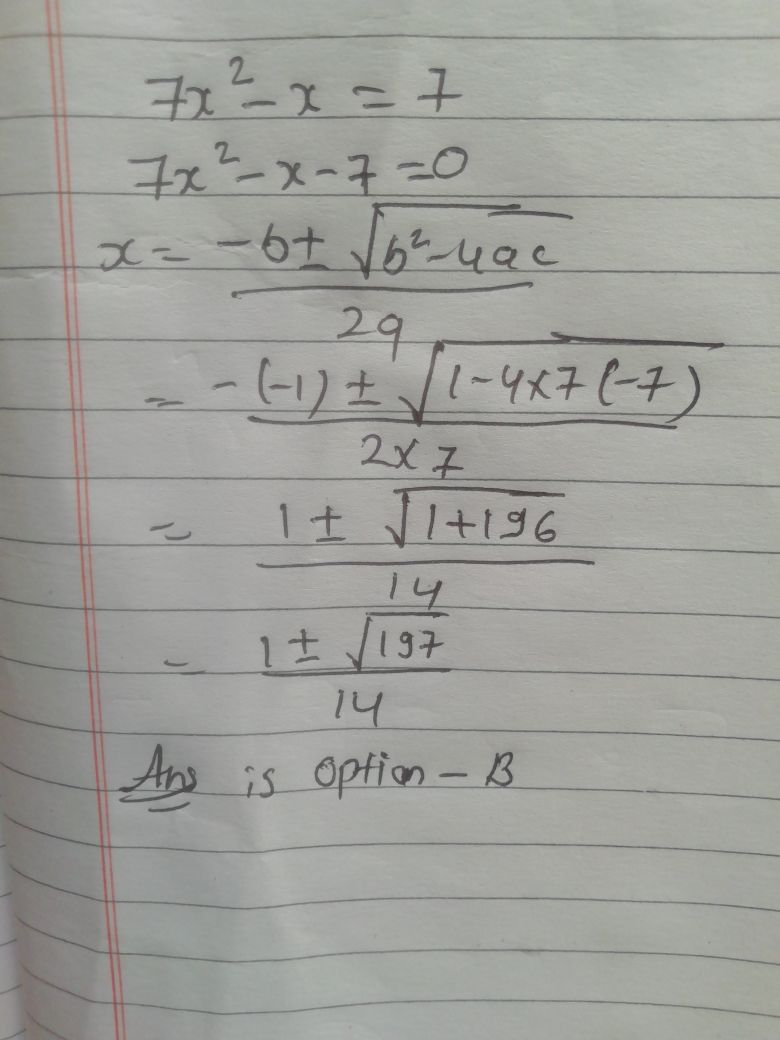 7x² - x = 7
7x² - x - 7 = 0
x = -b ± √b² - 4ac
2a
= -(-1) ± √1 - 4x7(-7)
2x7
= 1 ± √1+196
14
= 1 ± √197
14
Ans is option - B